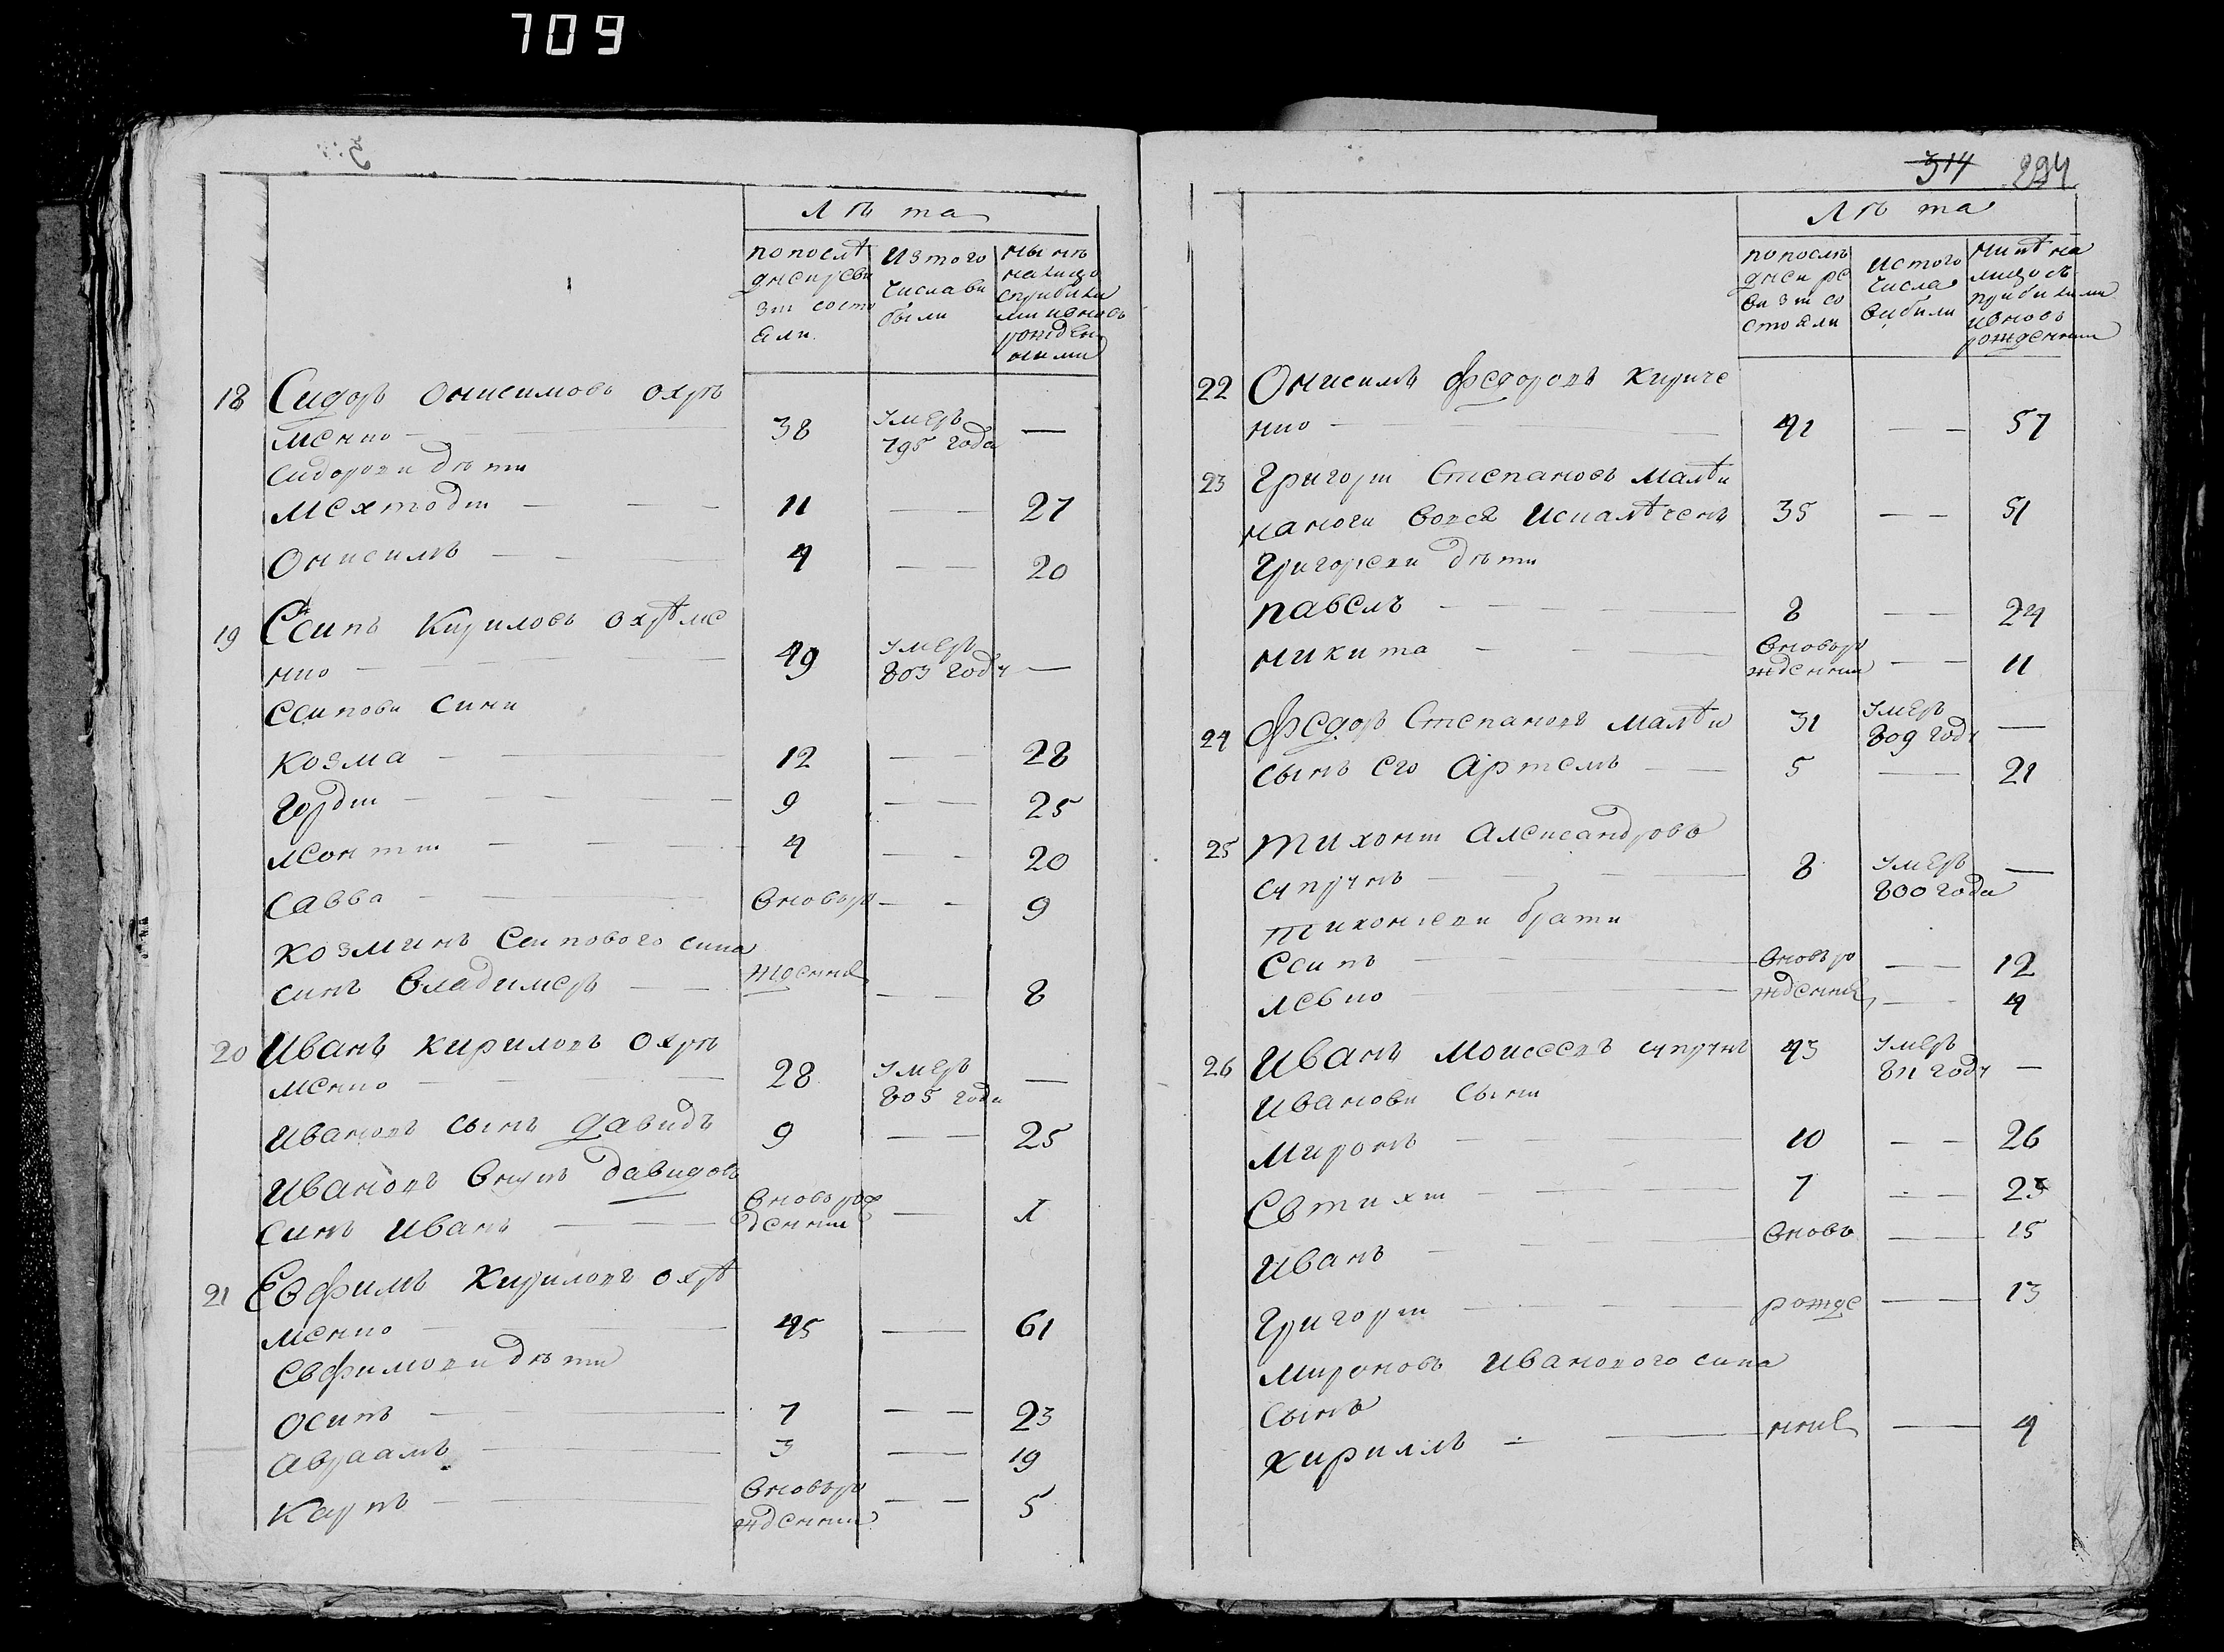 709
Лѣта
По послѣ
днси реви
зіи состо
яли
Изтого
числа вы
были
нынѣ
налицо
сприбыли
ми ивновь
рожден
ними
18 Сидоръ Онисимовъ Охрѣ
менко — 38 умеръ —
795 года
Сидорови дѣти
Мехтодій — 11 — 27
Онисимъ — 4 — 20
19 Есипъ Кириловъ Охрѣме
нко — 49 умеръ —
803 году
Есипови сини
Козма — 12 — 28
Гордій — 9 — 25
Леонтій — 4 — 20
Савва — вновьро — 9
Козминъ Есипового сина
синъ Владимеръ — жденнія — 8
20 Иванъ Кириловъ Охрѣ
менко — 28 умеръ —
805 года
Ивановъ сынъ Давидъ 9 — 25
Ивановъ внукъ Давидовъ
синъ Иванъ — вновьрож — 1
денний
21 Евфимъ Кириловъ Охрѣ
менко — 45 — 61
Евфимови дѣти
Осипъ — 7 — 23
Авраамъ — 3 — 19
Карпъ — вновьро — 5
жденний
314 294
Лѣта
По послѣ
днеи ре
визіи со
стояли
Истого
числа
вибили
нинѣ на
лицо съ
прибилими
ивновь
рожденними
22 Онисимъ Федоровъ Кириче
нко — 41 — 57
23 Григорій Степановъ Малѣи
на ноги вовся искалѣченъ 35 — 51
Григориеви дѣти
Павелъ — 8 — 24
Никита — вновьро — 11
жденний
24 Федоръ Степановъ Малѣи 31 умеръ —
809 году
сынъ его Артемъ — 5 — 21
25 Тихоній Александровъ
Супрунъ — 8 умеръ —
800 года
Тихониеви брати
Есипъ — вновьро — 12
Левко — жденнія — 4
26 Иванъ Моисеевъ Супрунъ 43 умеръ —
811 году
Иванови сыни
Миронъ — 10 — 26
Евтихій — 7 — 23
Иванъ — вновь — 15
Григорій — рожде — 13
Мироновъ Иванового сина
сынъ
Кириллъ — нніе — 4